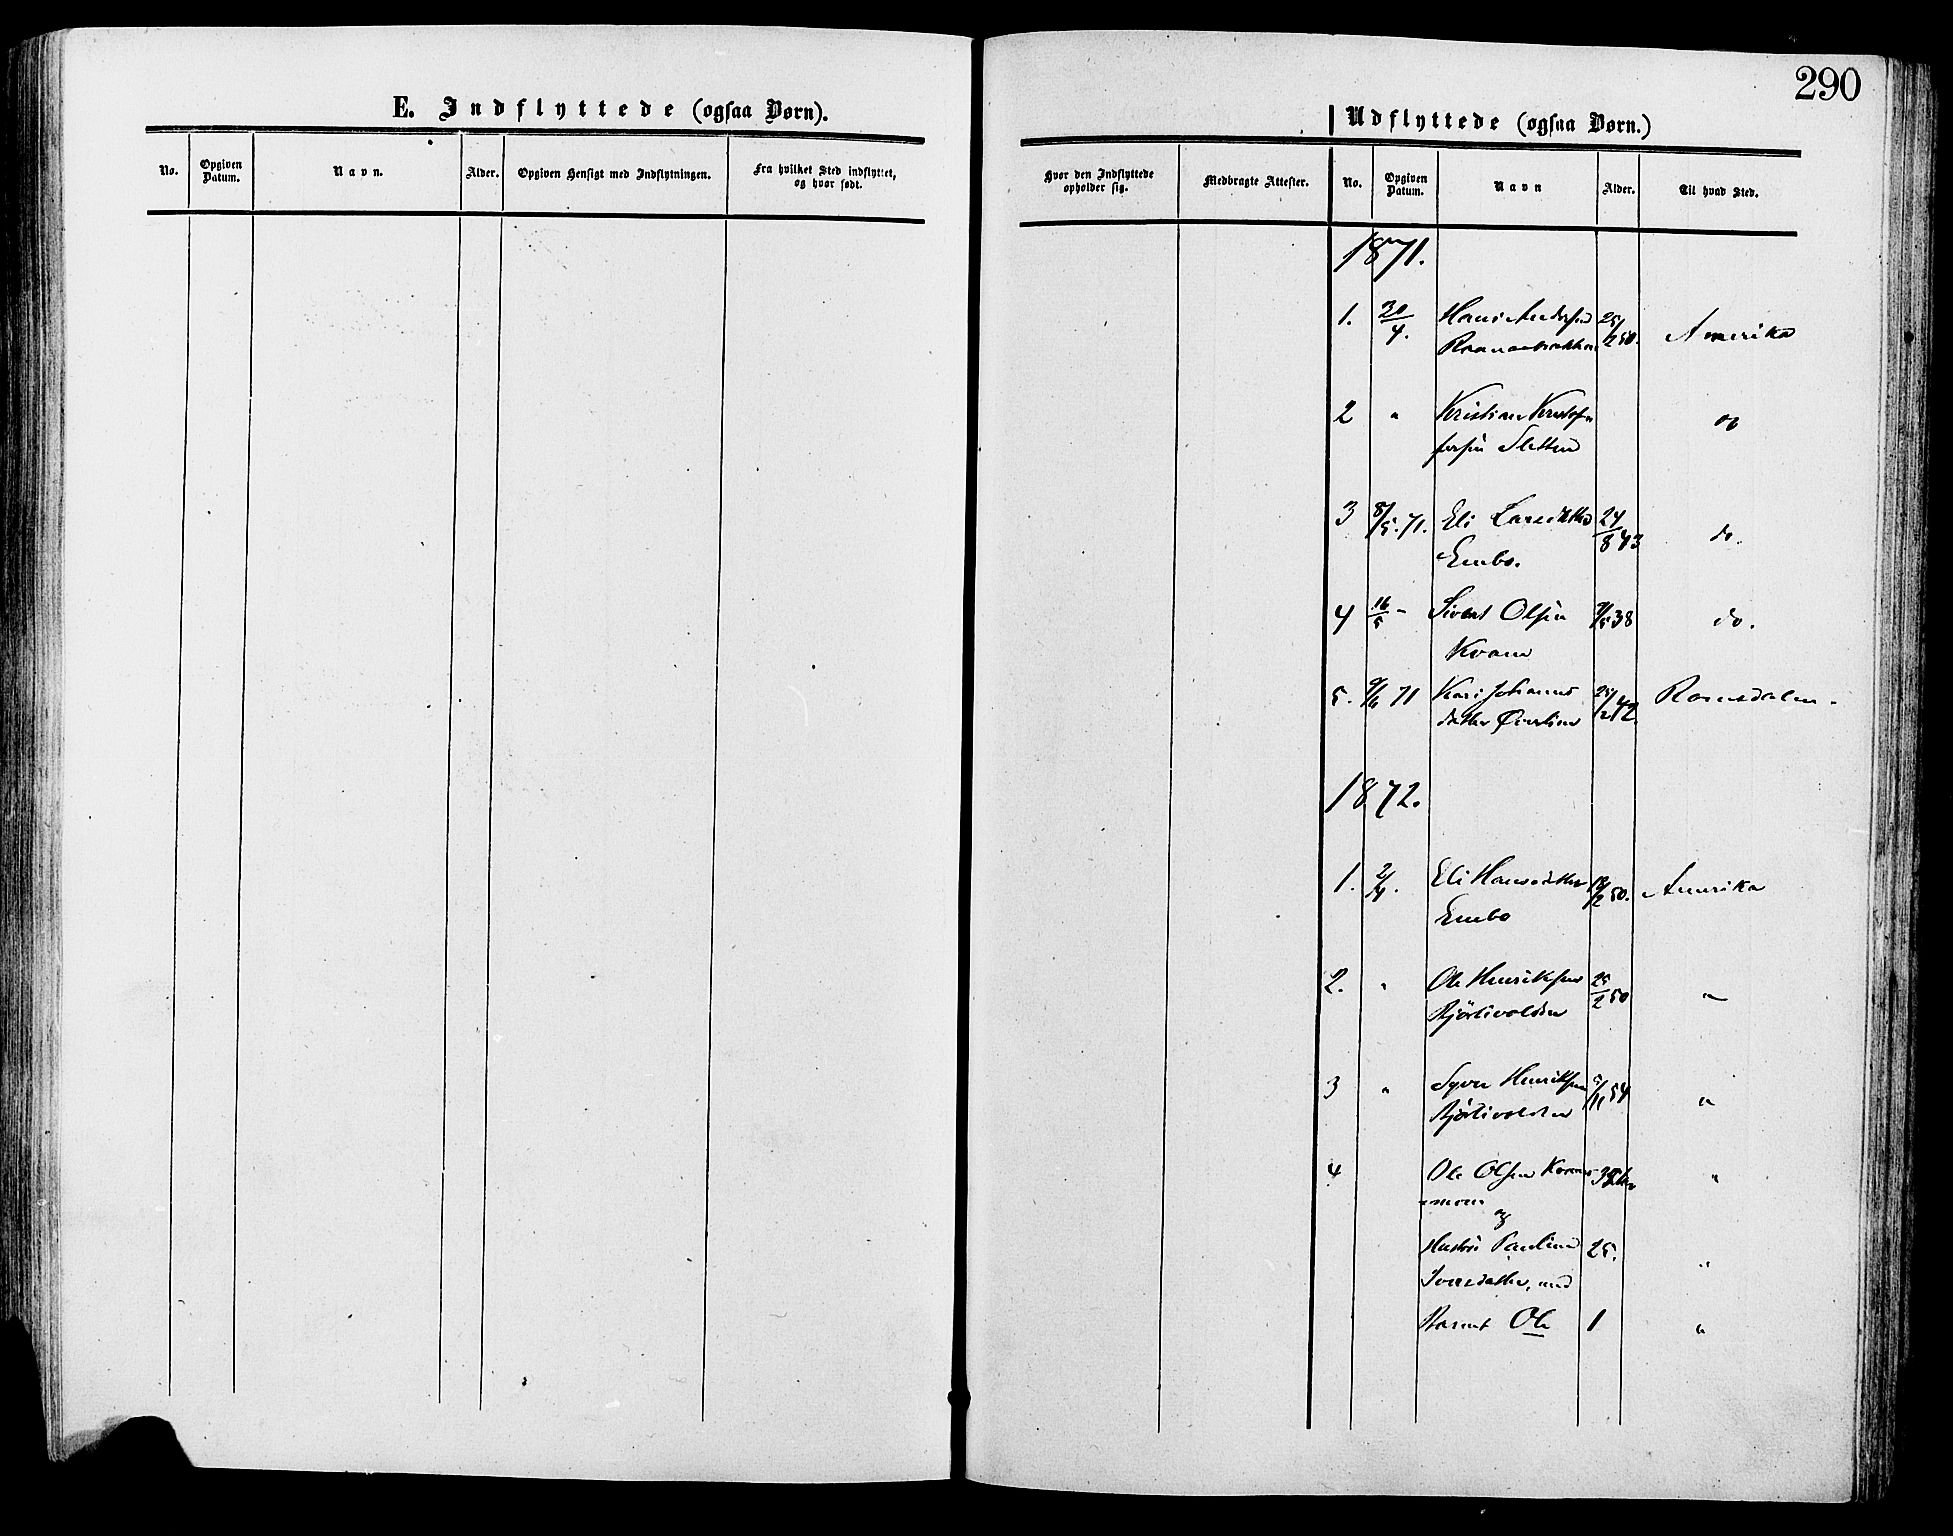 290
E. Indflyttede (ogsaa Børn).
No. Opgiven Datum. Navn. Alder. Opgiven Hensigt med Indflytningen. Fra hvilket Sted indflyttet, og hvor født.
Udflyttede (ogsaa Børn.)
Hvor den Indflyttede opholder sig. Medbragte Attester. No. Opgiven Datum. Navn Alder. Til hvad Sted.
1871.
1. 30/4. Hans Andersen 25/2 50. Amerika
2 " Kristian Kristof
fersen Sletten do
3 8/5. 71. Eli Larsdatter 24/8 43 do.
Enbo.
4 16/5 - Sivert Olsen 9/5 38 do.
Kvam
5. 9/6 71 Kari Johannes 25/2 42. Romsdalen.
datter Øverlien
1872.
1. 2/4. Eli Hansdatter 18/2 50. Amerika
Enbo
2. " Ole Henriksen 25/2 50 "
Bjørlivolden
3 " Syver Henriksen 5/11 54 "
Bjørlivolden
4 Ole Olsen "
og
Hustru Pauline 25. "
Iversdatter, med
Barnet Ole 1 "